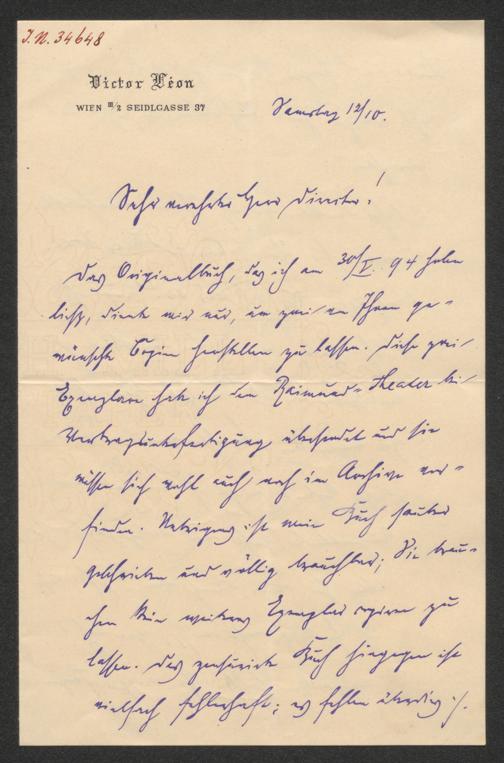 I.N. 34648
Victor Léon
WIEN III/2 SEIDLGASSE 37
Samstag 12/10.
Sehr verehrter Herr Director!
Das Originalbuch, das ich am 30/V. 94 holen
ließ, diente mir nur, um zwei von Ihnen ge-
wünschte Copien herstellen zu lassen. Diese zwei
Exemplare habe ich dem Raimund-Theater bei
Vertragsunterfertigung übersendet und sie
müssen sich wohl auch noch im Archive vor-
finden. Uebrigens ist mein Buch sauber
geschrieben und völlig brauchbar; Sie brau-
chen kein weiteres Exemplar copiren zu
lassen. Das censurirte Buch hingegen ist
vielfach fehlerhaft; es fehlen überdies ./.